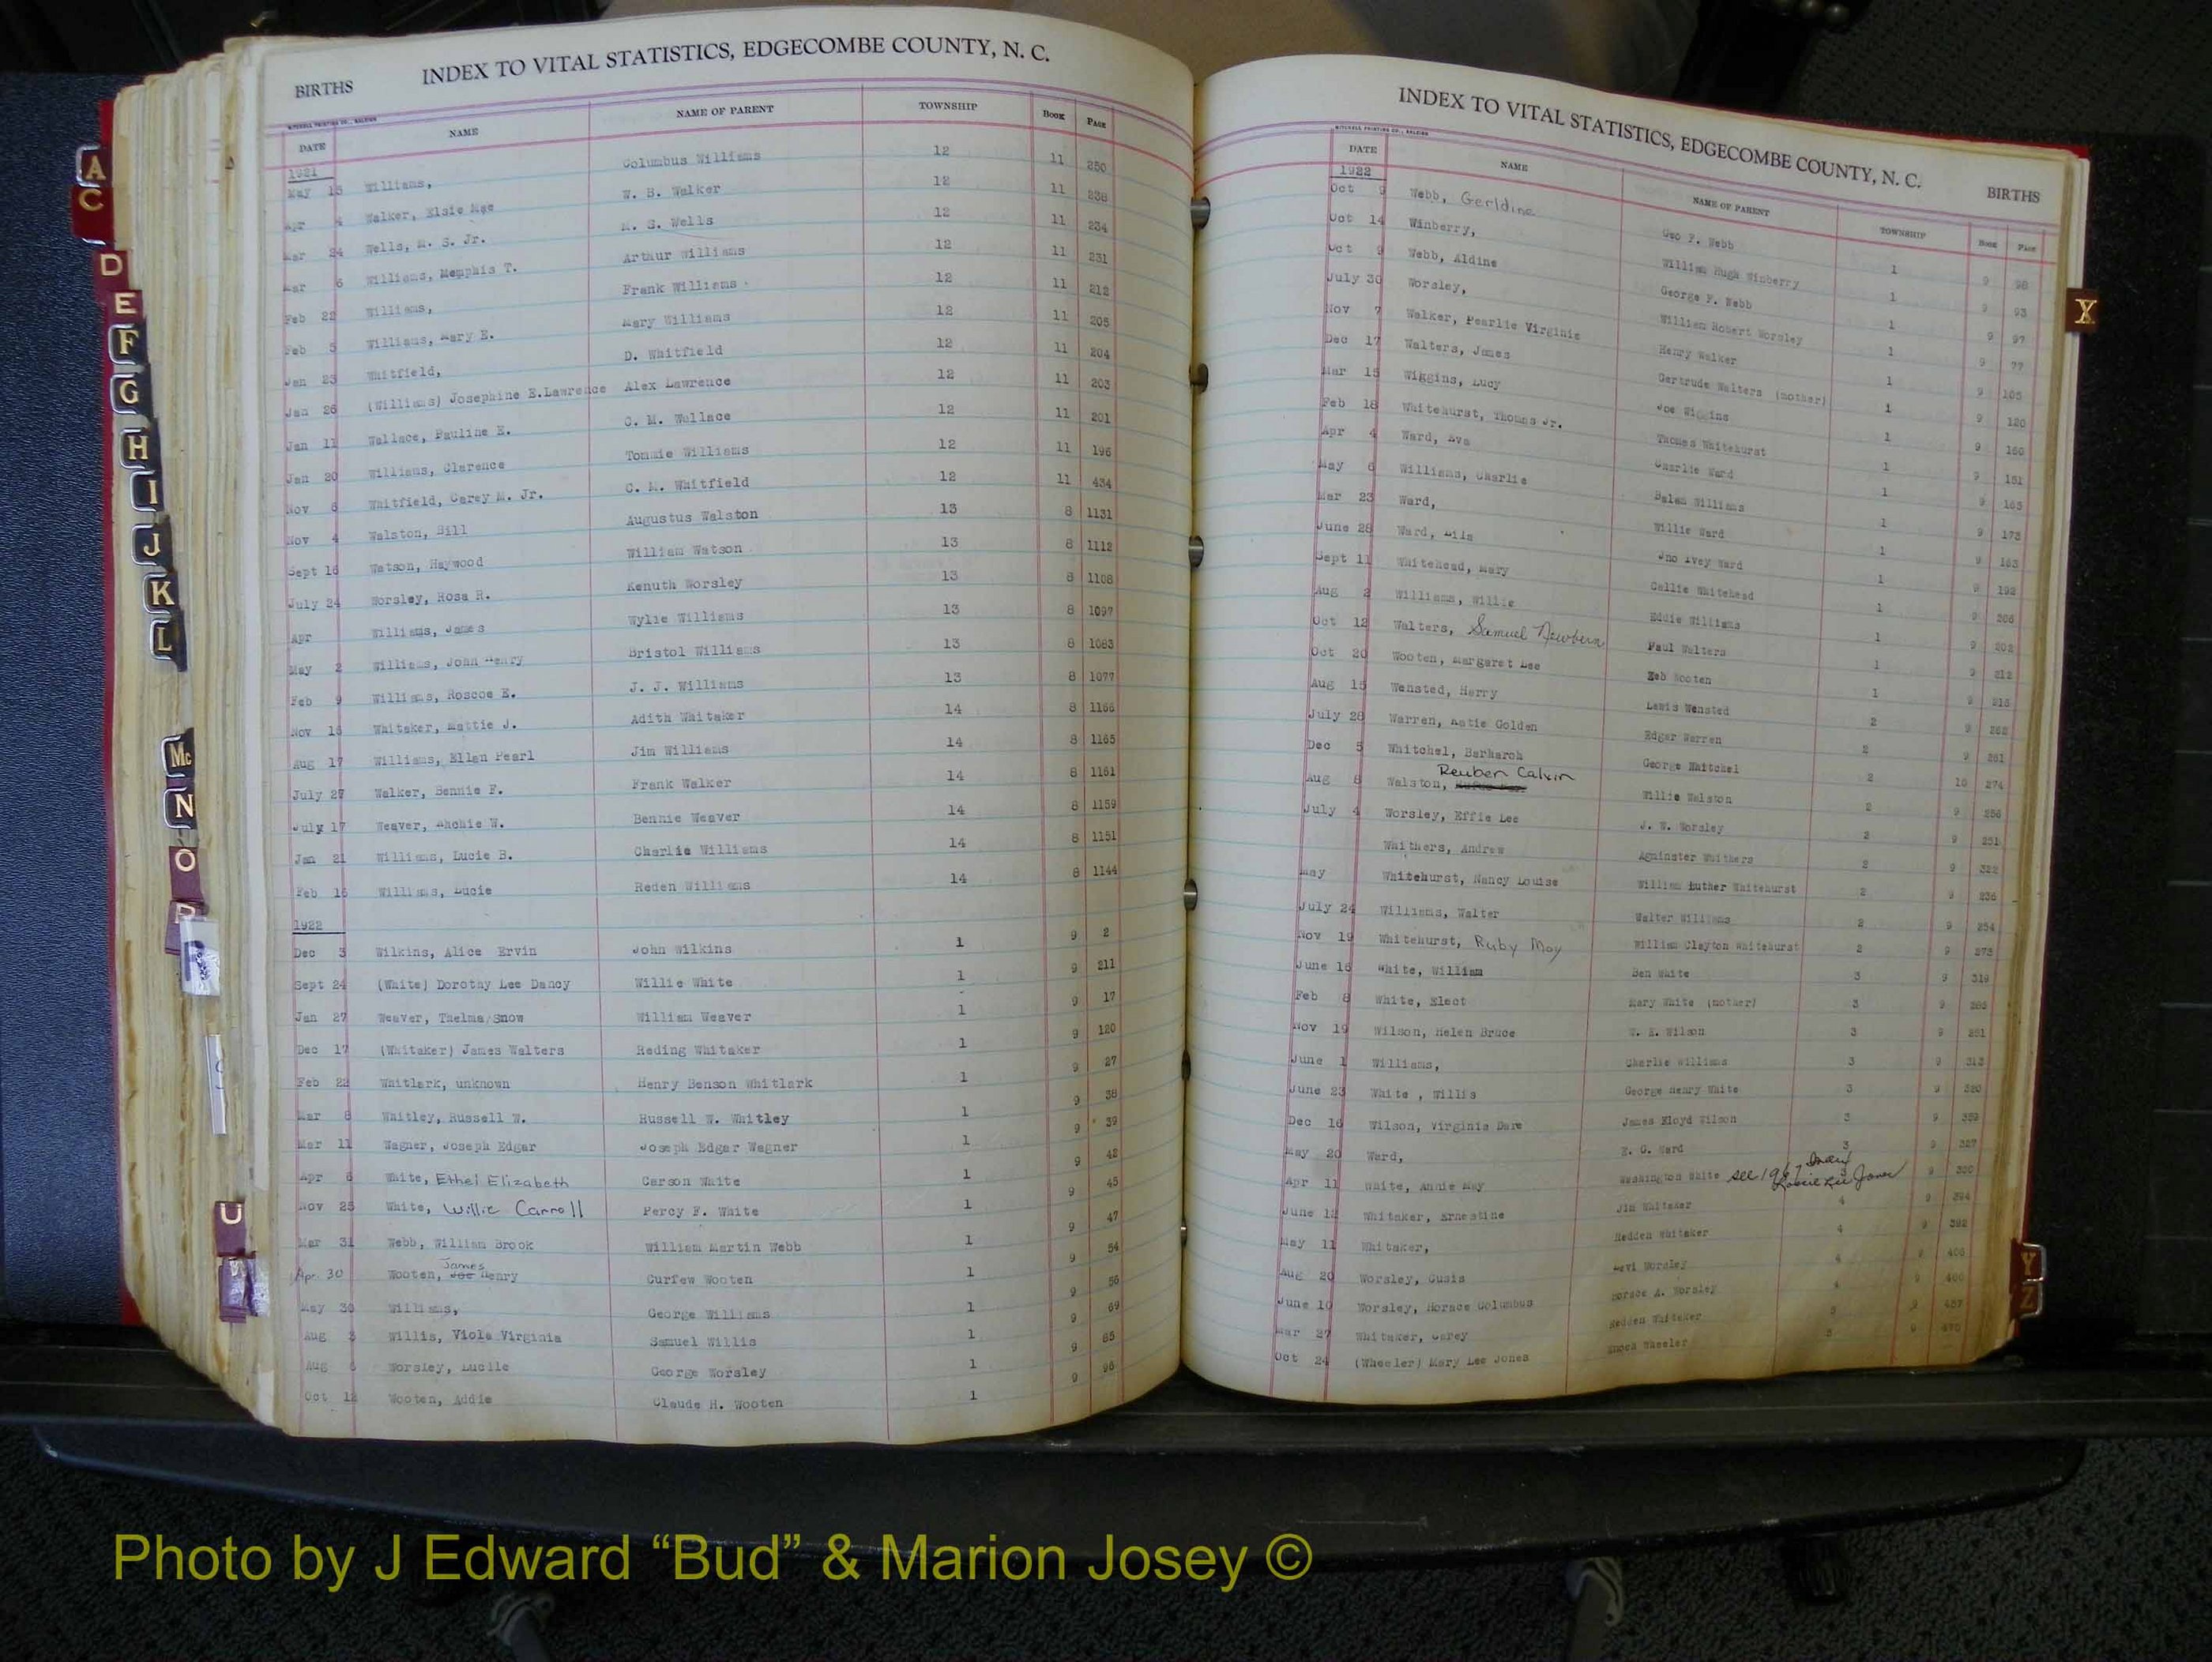 BIRTHS
INDEX TO VITAL STATISTICS, EDGECOMBE COUNTY, N. C.
MITCHELL PRINTING CO., RALEIGH
DATE NAME NAME OF PARENT TOWNSHIP BOOK PAGE
1921
May 15 Williams, Columbus Williams 12 11 250
Apr 4 Walker, Elsie Mae W. B. Walker 12 11 238
Mar 24 Wells, M. S. Jr. M. S. Wells 12 11 234
Mar 6 Williams, Memphis T. Arthur Williams 12 11 231
Feb 22 Williams, Frank Williams 12 11 212
Feb 5 Williams, Mary E. Mary Williams 12 11 205
Jan 23 Whitfield, D. Whitfield 12 11 204
Jan 26 (Williams) Josephine E.Lawrence Alex Lawrence 12 11 203
Jan 11 Wallace, Pauline E. C. M. Wallace 12 11 201
Jan 20 Williams, Clarence Tommie Williams 12 11 196
Nov 6 Whitfield, Carey M. Jr. C. M. Whitfield 12 11 434
Nov 4 Walston, Bill Augustus Walston 13 8 1131
Sept 16 Watson, Haywood William Watson 13 8 1112
July 24 Worsley, Rosa R. Kenuth Worsley 13 8 1108
Apr Williams, James Wylie Williams 13 8 1097
May 2 Williams, John Henry Bristol Williams 13 8 1083
Feb 9 Williams, Roscoe E. J. J. Williams 13 8 1077
Nov 15 Whitaker, Mattie J. Adith Whitaker 14 8 1166
Aug 17 Williams, Ellen Pearl Jim Williams 14 8 1165
July 27 Walker, Bennie F. Frank Walker 14 8 1161
July 17 Weaver, W. Bennie Weaver 14 8 1159
Jan 21 Williams, Lucie B. Charlie Williams 14 8 1151
Feb 16 Williams, Lucie Reden Williams 14 8 1144
1922
Dec 3 Wilkins, Alice Ervin John Wilkins 1 9 2
Sept 24 (White) Dorothy Lee Dancy Willie White 1 9 211
Jan 27 Weaver, Thelma Snow William Weaver 1 9 17
Dec 17 (Whitaker) James Walters Reding Whitaker 1 9 120
Feb 22 Whitlark, unknown Henry Benson Whitlark 1 9 27
Mar 8 Whitley, Russell W. Russell W. Whitley 1 9 38
Mar 11 Wagner, Joseph Edgar Joseph Edgar Wagner 1 9 39
Apr 6 White, Ethel Elizabeth Carson White 1 9 42
Nov 25 White, Willie Carroll Percy F. White 1 9 45
Mar 31 Webb, William Brook William Martin Webb 1 9 47
Apr 30 Wooten, James Joe Henry Curfew Wooten 1 9 54
May 30 Williams, George Williams 1 9 56
Aug 3 Willis, Viola Virginia Samuel Willis 1 9 69
Aug 6 Worsley, Lucile George Worsley 1 9 85
Oct 12 Wooten, Addie Claude H. Wooten 1 9 96
INDEX TO VITAL STATISTICS, EDGECOMBE COUNTY, N. C.
BIRTHS
MITCHELL PRINTING CO., RALEIGH
DATE NAME NAME OF PARENT TOWNSHIP BOOK PAGE
1922
Oct 9 Webb, Gerldine Geo F. Webb 1 9 98
Oct 14 Winberry, William Hugh Winberry 1 9 93
Oct 9 Webb, Aldine George F. Webb 1 9 97
July 30 Worsley, William Robert Worsley 1 9 77
Nov 7 Walker, Pearlie Virginia Henry Walker 1 9 105
Dec 17 Walters, James Gertrude Walters (mother) 1 9 120
Mar 15 Wiggins, Lucy Joe Wiggins 1 9 160
Feb 18 Whitehurst, Thomas Jr. Thomas Whitehurst 1 9 151
Apr 4 Ward, Eva Charlie Ward 1 9 165
May 6 Williams, Charlie Williams 1 9 173
Mar 23 Ward, Willie Ward 1 9 163
June 28 Ward, Jno Ivey Ward 1 9 192
Sept 11 Whitehead, Mary Callie Whitehead 1 9 206
Aug 2 Williams, Willie Eddie Williams 1 9 202
Oct 12 Walters, Samuel Newbern Paul Walters 1 9 212
Oct 20 Wooten, Margaret Lee Zeb Wooten 1 9
Aug 15 Wensted, Harry Lewis Wensted 2 9 262
July 28 Warren, Katie Golden Edgar Warren 2 9 261
Dec 5 Whitchel, Barbarah George Whitchel 2 10 274
Aug 8 Walston, Reuben Calvin Willie Walston 2 9 256
July 4 Worsley, Effie Lee J. W. Worsley 2 9 251
Whithers, Andrew Agminster Whithers 2 9 322
May Whitehurst, Nancy Louise William Luther Whitehurst 2 9 236
July 24 Williams, Walter Walter Williams 2 9 254
Nov 19 Whitehurst, Ruby May William Clayton Whitehurst 2 9 273
June 16 White, William Ben White 3 9 319
Feb 8 White, Elect Mary White (mother) 3 9
Nov 19 Wilson, Helen Bruce W. E. Wilson 3 9
June 1 Williams, Charlie Williams 3 9 313
June 23 White , Willis George Henry White 3 9 320
Dec 16 Wilson, Virginia Dare James Floyd Wilson 3 9 359
May 20 Ward, E. G. Ward 3 9 307
Apr 11 White, Annie May Washington White see 1967 Index 3 9
June 12 Whitaker, Ernestine Jim Whitaker 4 9 394
May 11 Whitaker, Redden Whitaker 4 9 392
Aug 20 Worsley, Gusis Levi Worsley 4 9 406
June 10 Worsley, Horace Columbus Horace A. Worsley 4 9
Mar 27 Whitaker, Carey Redden Whitaker 9
Oct 24 (Wheeler) Mary Lee Jones Enoch Wheeler 9
A
C
D
E
F
G
H
I
J
K
L
Mc
N
O
P
U
W
X
Y
Z
Photo by J Edward “Bud” & Marion Josey ©